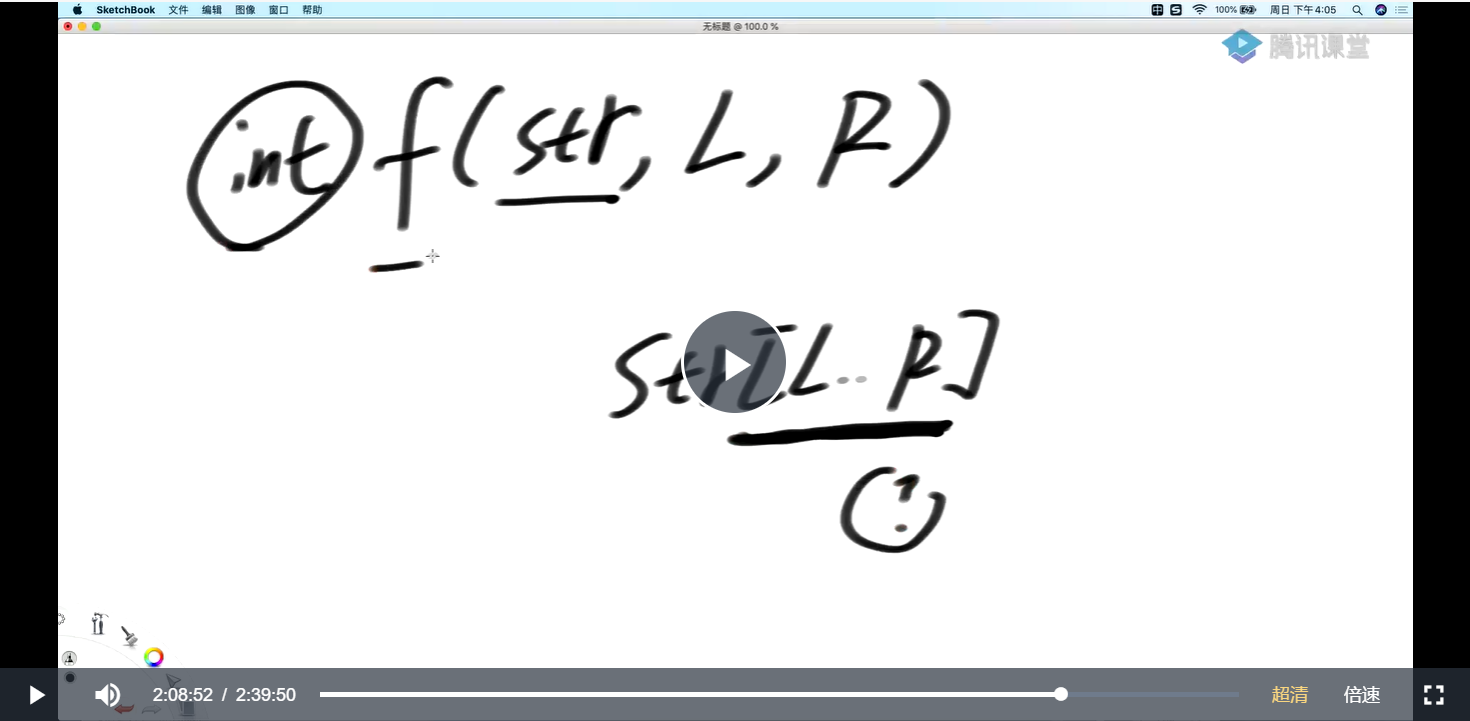 SketchBook 文件 编辑 图像 窗口 帮助 100% 周日 下午4:05
无标题 @ 100.0 %
腾讯课堂
int f(str, L, R)
str[L..R]
?
2:08:52 / 2:39:50 超清 倍速